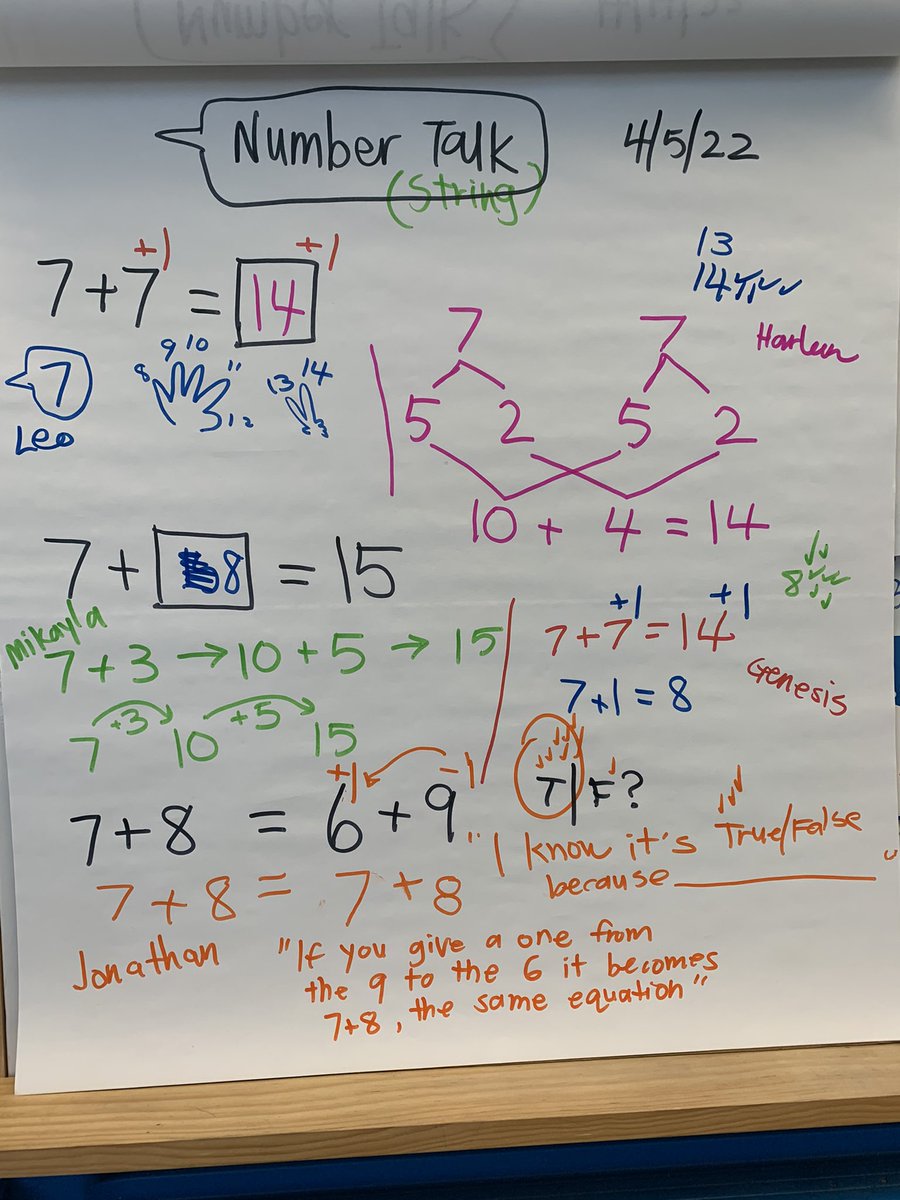 Number Talk
(String)
4/5/22
+1 +1
7+7 = 14
13
14
7
Leo
8 9 10 11 12
13 14
7 7
5 2 5 2
10 + 4 = 14
7 + 8 = 15
8
Mikayla
7+3 → 10+5 → 15
+3 +5
7 10 15
+1 +1
7+7=14
7+1=8
Genesis
+1 -1
7+8 = 6+9
T/F?
7+8 = 7+8
"I know it's True/False
because ____________"
Jonathan
"If you give a one from
the 9 to the 6 it becomes
7+8, the same equation"